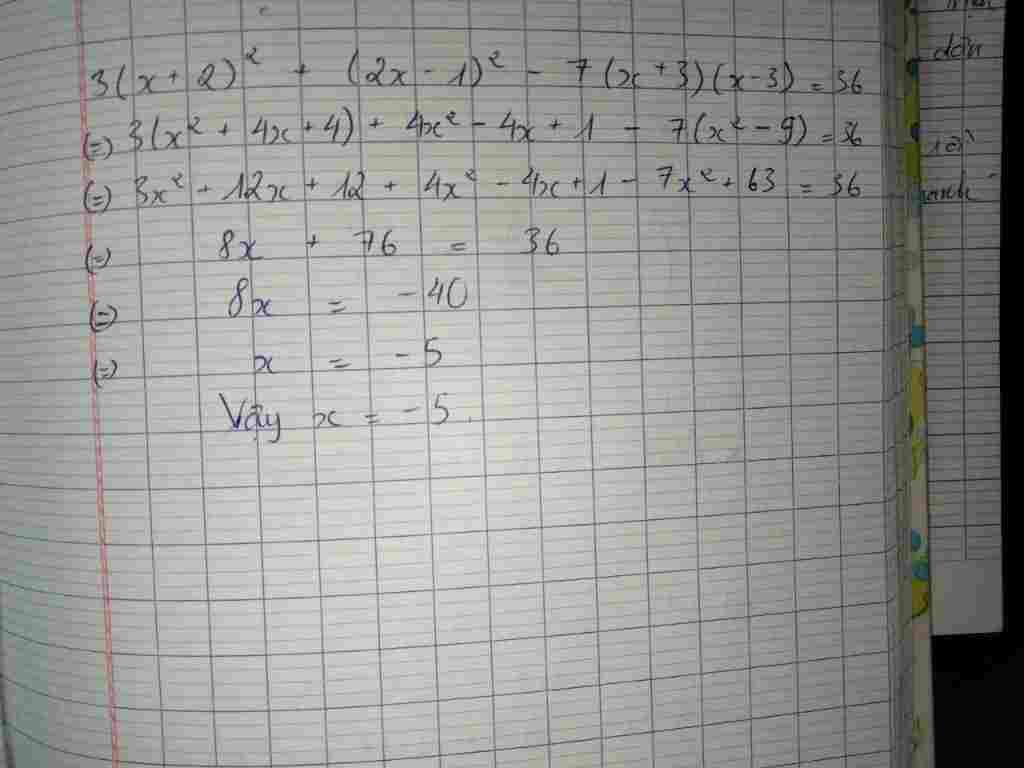 3(x+2)² + (2x-1)² - 7(x+3)(x-3) = 36
(=) 3(x² + 4x + 4) + 4x² - 4x + 1 - 7(x² - 9) = 36
(=) 3x² + 12x + 12 + 4x² - 4x + 1 - 7x² + 63 = 36
(=) 8x + 76 = 36
(=) 8x = -40
(=) x = -5
Vậy x = -5.